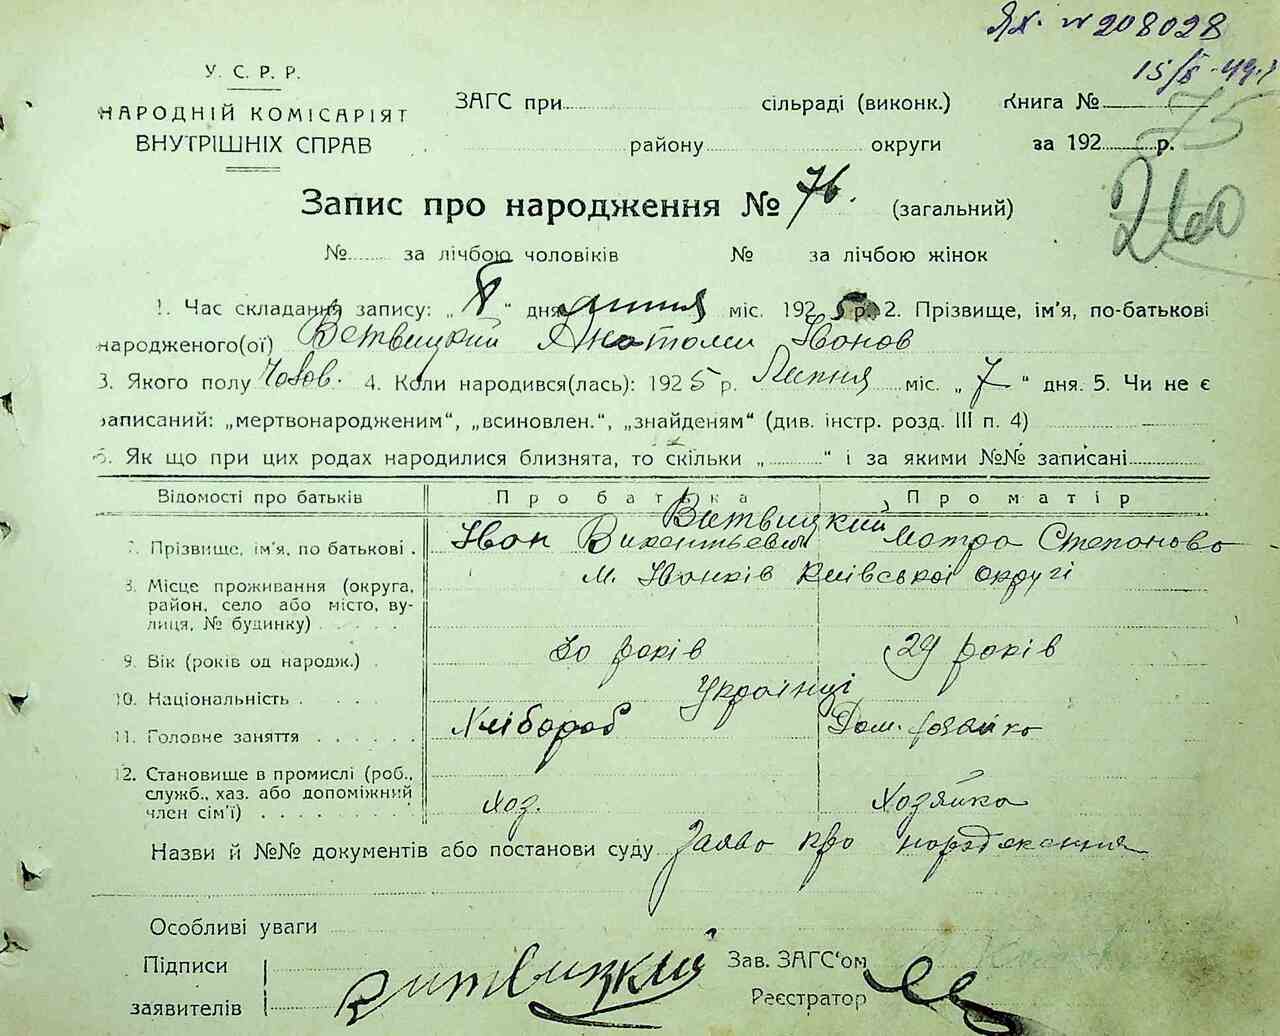 Ях. № 208028
15/X - 49 г
У. С. Р. Р.
НАРОДНІЙ КОМІСАРІЯТ
ВНУТРІШНІХ СПРАВ
ЗАГС при сільраді (виконк.) Книга №
75
району округи за 192 р.
260
Запис про народження № 76. (загальний)
№ за лічбою чоловіків № за лічбою жінок
1. Час складання запису: „ “ дня липня міс. 1925 р. 2. Прізвище, ім'я, по-батькові
народженого(ої) Ветвицкий Анатоли Іванов
3. Якого полу Чолов. 4. Коли народився(лась): 1925 р. Липня міс. „7“ дня. 5. Чи не є
записаний: „мертвонародженим“, „всиновлен.“, „знайденям“ (див. інстр. розд. III п. 4)
6. Як що при цих родах народилися близнята, то скільки „ “ і за якими №№ записані
Відомості про батьків Про батька Про матір
Ветвицкий
7. Прізвище, ім'я, по батькові . Іван Викентьевич Мотра Степанова
8. Місце проживання (округа, район, село або місто, вулиця, № будинку) . . . . . м. Іванків Київської округі
9. Вік (років од народж.) . 30 років 29 років
10. Національність . . . . Українці
11. Головне заняття . . . . . . Хлібороб Дом. хозяйка
12. Становище в промислі (роб.,
служб., хаз. або допоміжний
член сім'ї) . . . . . . . . . Хоз. Хозяйка
Назви й №№ документів або постанови суду Заява про народження
Особливі уваги
Підписи Зав. ЗАГС'ом
заявителів Витвицкий Реєстратор